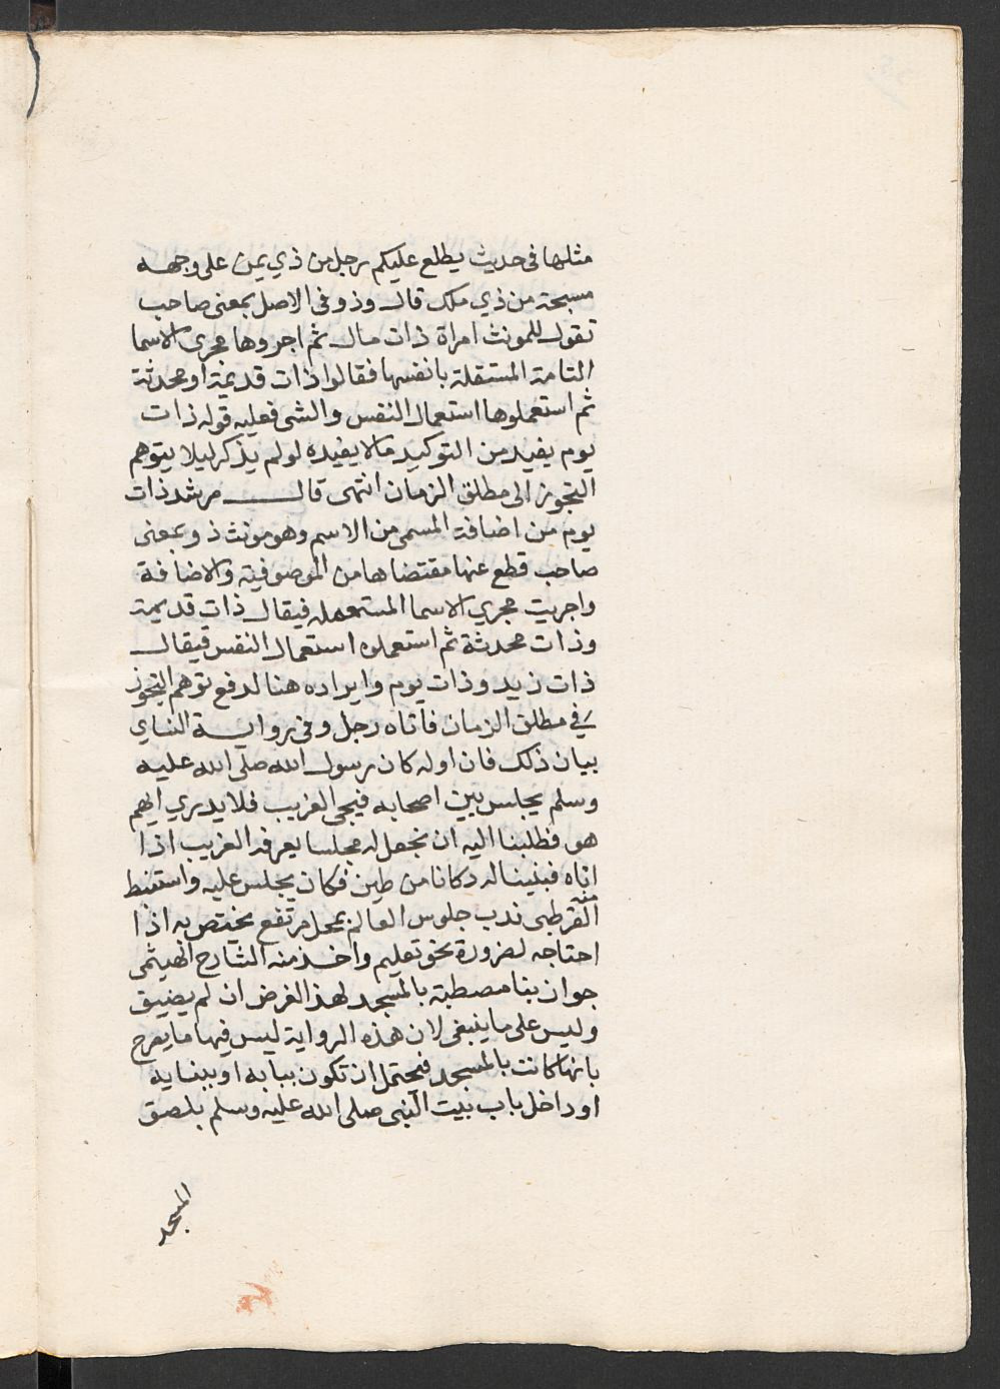 مثلها في حديث يطلع عليكم رجل من ذي يمن على وجهه
مسحة من ذي ملك قال وذو في الاصل بمعنى صاحب
تقول للمونث امراة ذات مال ثم اجروها مجرى الاسما
التامة المستقلة بانفسها فقالوا ذات قديمة او محدثة
ثم استعملوها استعمال النفس والشي فعليه قوله ذات
يوم يفيد من التوكيد مالا يفيده لو لم يذكر ليلا يتوهم
التجوز الى مطلق الزمان انتهى قال مرشد ذات
يوم من اضافة المسمى من الاسم وهو مونث ذو بمعنى
صاحب قطع عنها مقتضاها من الموصوفية والاضافة
واجريت مجري الاسما المستعمله فيقال ذات قديمة
وذات محدثة ثم استعملوه استعمال النفس فيقال
ذات زيد وذات يوم وايراده هنا لدفع توهم التجوز
في مطلق الزمان فاتاه رجل وفي رواية النساي
بيان ذلك فان اوله كان رسول الله صلى الله عليه
وسلم يجلس بين اصحابه فيجي الغريب فلا يدري ايهم
هو فطلبنا اليه ان نجعل له مجلسا يعرفه الغريب اذا
اتاه فبنينا له دكانا من طين فكان يجلس عليه واستنبط
منه
القرطبي ندب جلوس العالم بمحل مرتفع يختص به اذا
احتاجه لضرورة نحو تعليم واخذ منه الشارح الهيثمي
جوان بنا مصطبة بالمسجد لهذا الغرض ان لم يضيق
وليس على ما ينبغي لان هذه الرواية ليس فيها ما يصرح
بانها كانت بالمسجد فيحتمل ان تكون ببابه او بفنايه
او داخل باب بيت النبي صلى الله عليه وسلم بلصق
المسجد